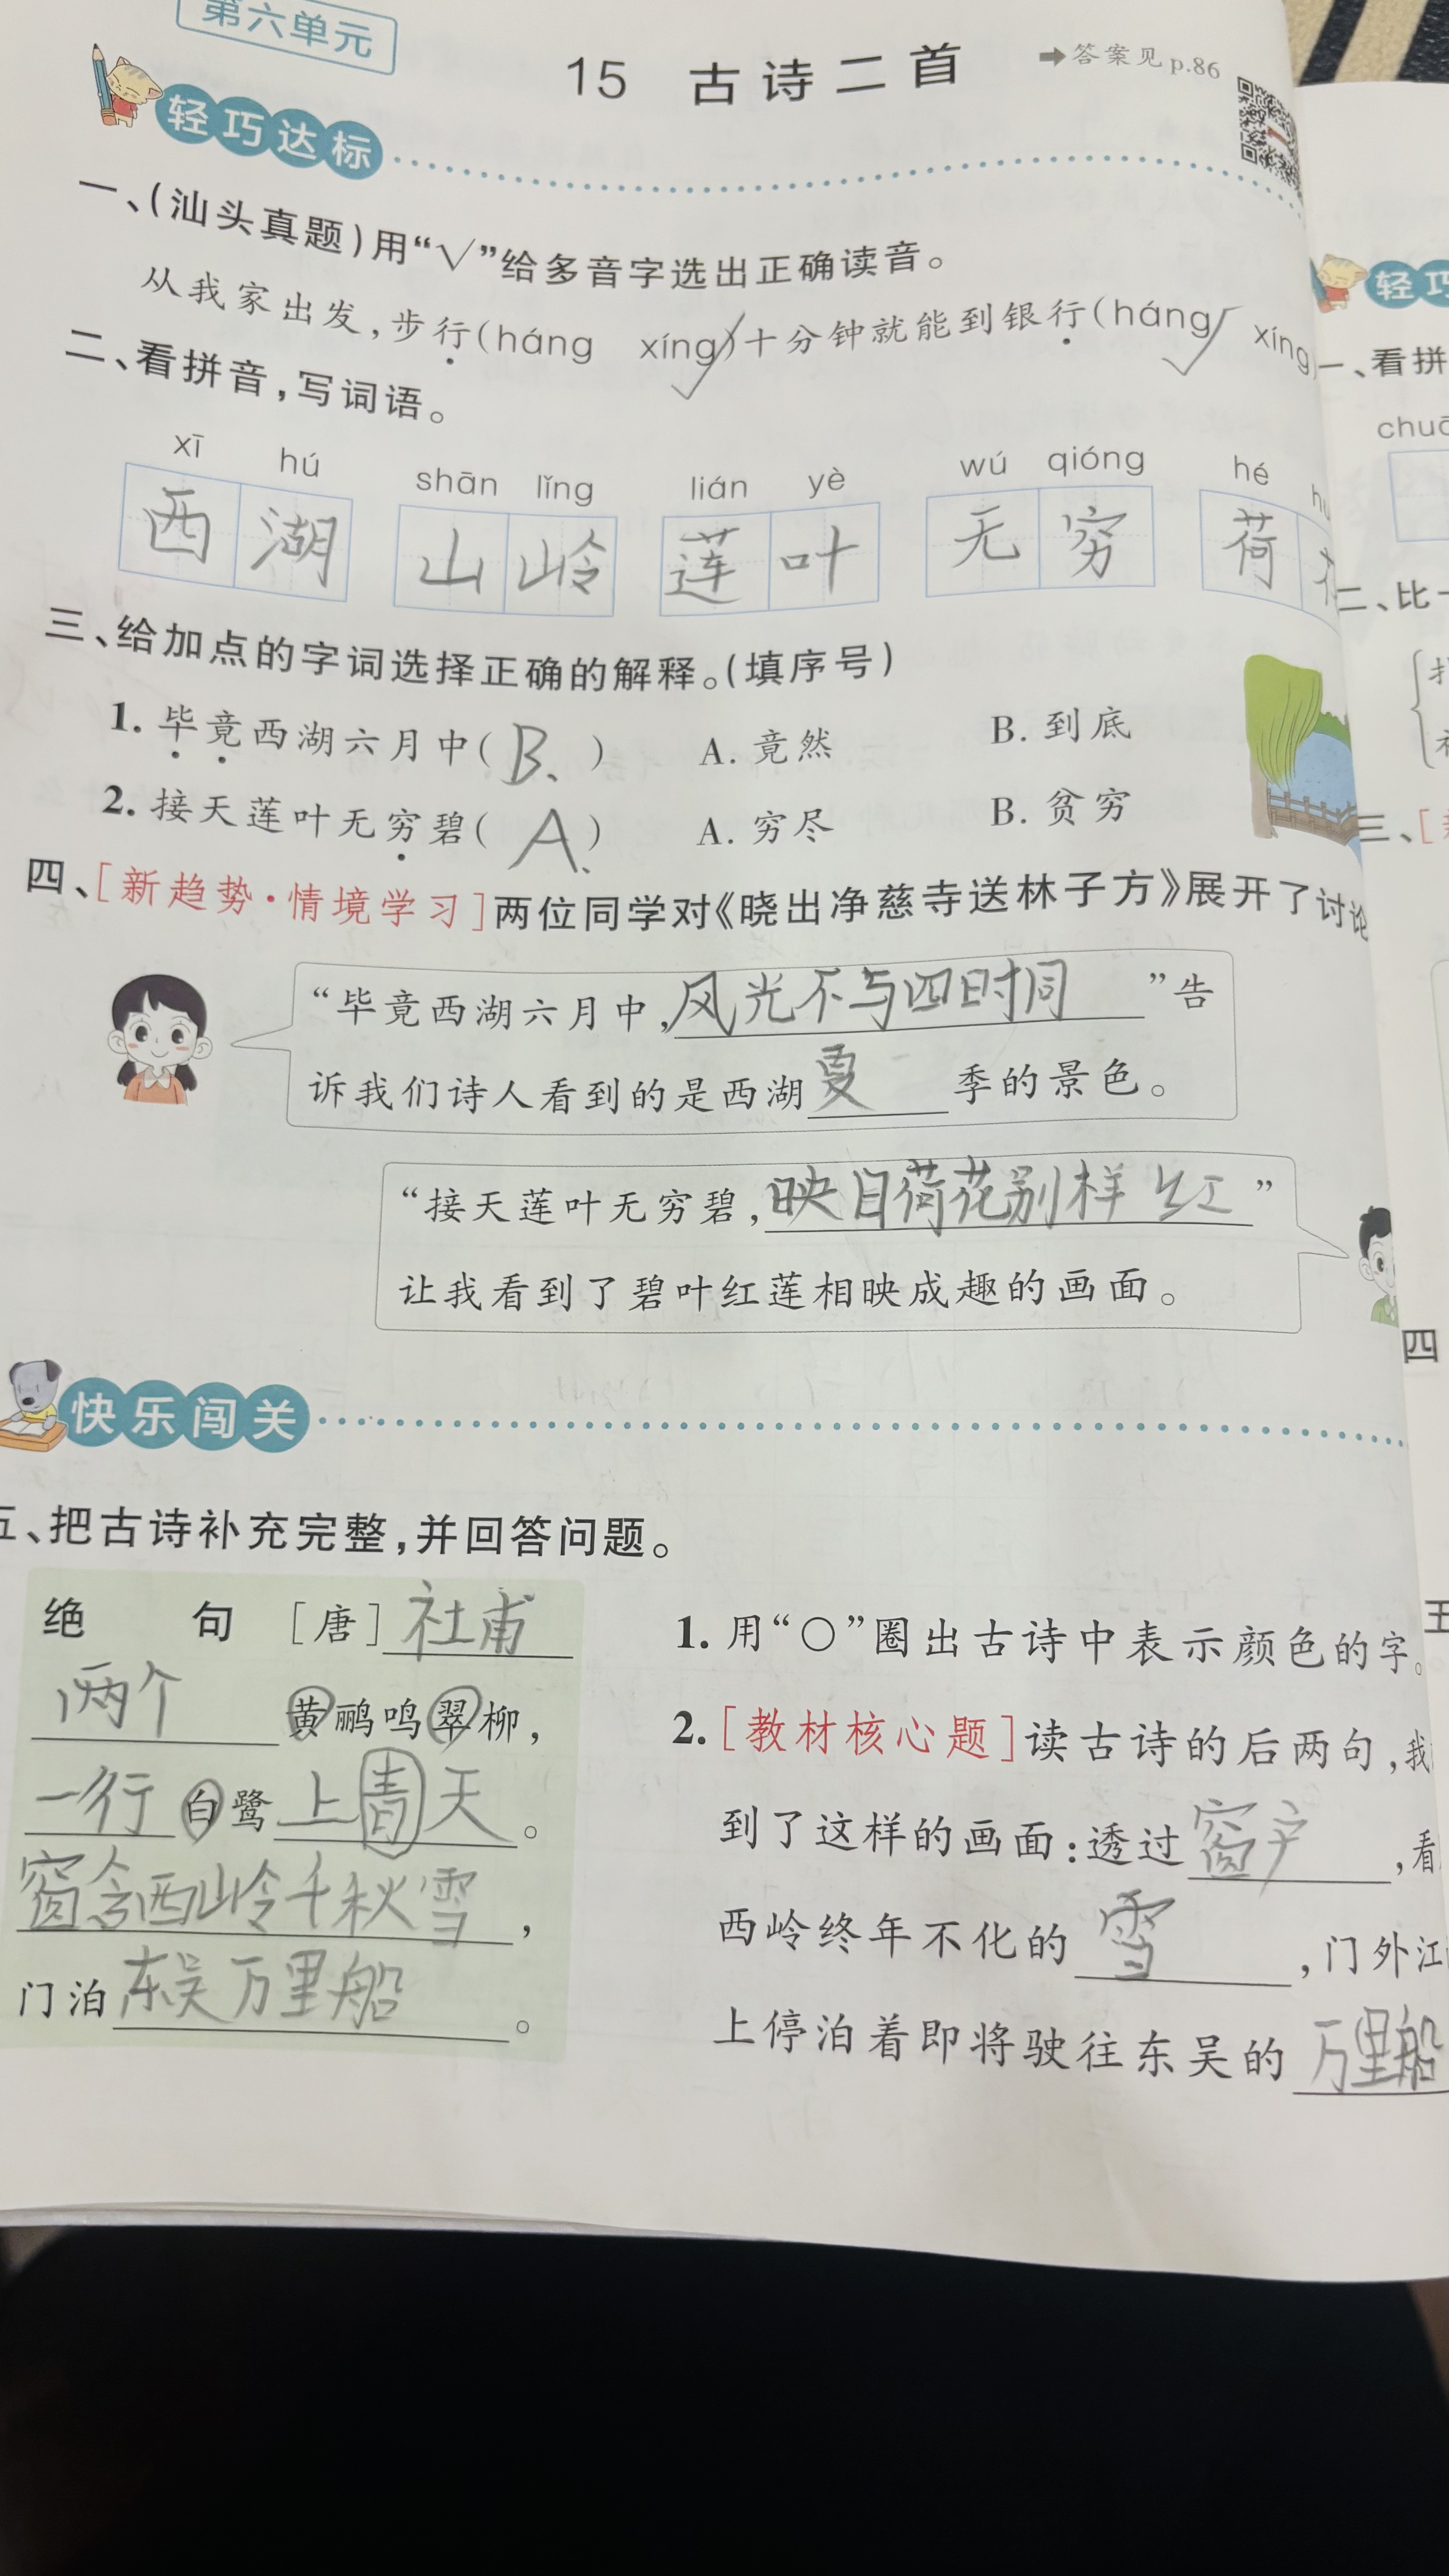 第六单元
15 古诗二首
➡答案见p.86
轻巧达标
一、(汕头真题)用“√”给多音字选出正确读音。
从我家出发,步行(háng xíng)十分钟就能到银行(háng xíng
二、看拼音,写词语。
xī hú shān lǐng lián yè wú qióng hé
西湖 山岭 莲叶 无穷 荷
三、给加点的字词选择正确的解释。(填序号)
1. 毕竟西湖六月中( B、 ) A. 竟然 B. 到底
2. 接天莲叶无穷碧( A、 ) A. 穷尽 B. 贫穷
四、[新趋势·情境学习]两位同学对《晓出净慈寺送林子方》展开了讨论
“毕竟西湖六月中,风光不与四时同”告
诉我们诗人看到的是西湖夏季的景色。
“接天莲叶无穷碧,映日荷花别样红”
让我看到了碧叶红莲相映成趣的画面。
快乐闯关
五、把古诗补充完整,并回答问题。
绝 句 [唐]社甫
两个黄鹂鸣翠柳,
一行白鹭上青天。
窗含西岭千秋雪,
门泊东吴万里船。
1. 用“○”圈出古诗中表示颜色的字。
2. [教材核心题]读古诗的后两句,我
到了这样的画面:透过窗户,看
西岭终年不化的雪,门外江
上停泊着即将驶往东吴的万里船
轻巧
一、看拼
二、比一
三、[
四
五